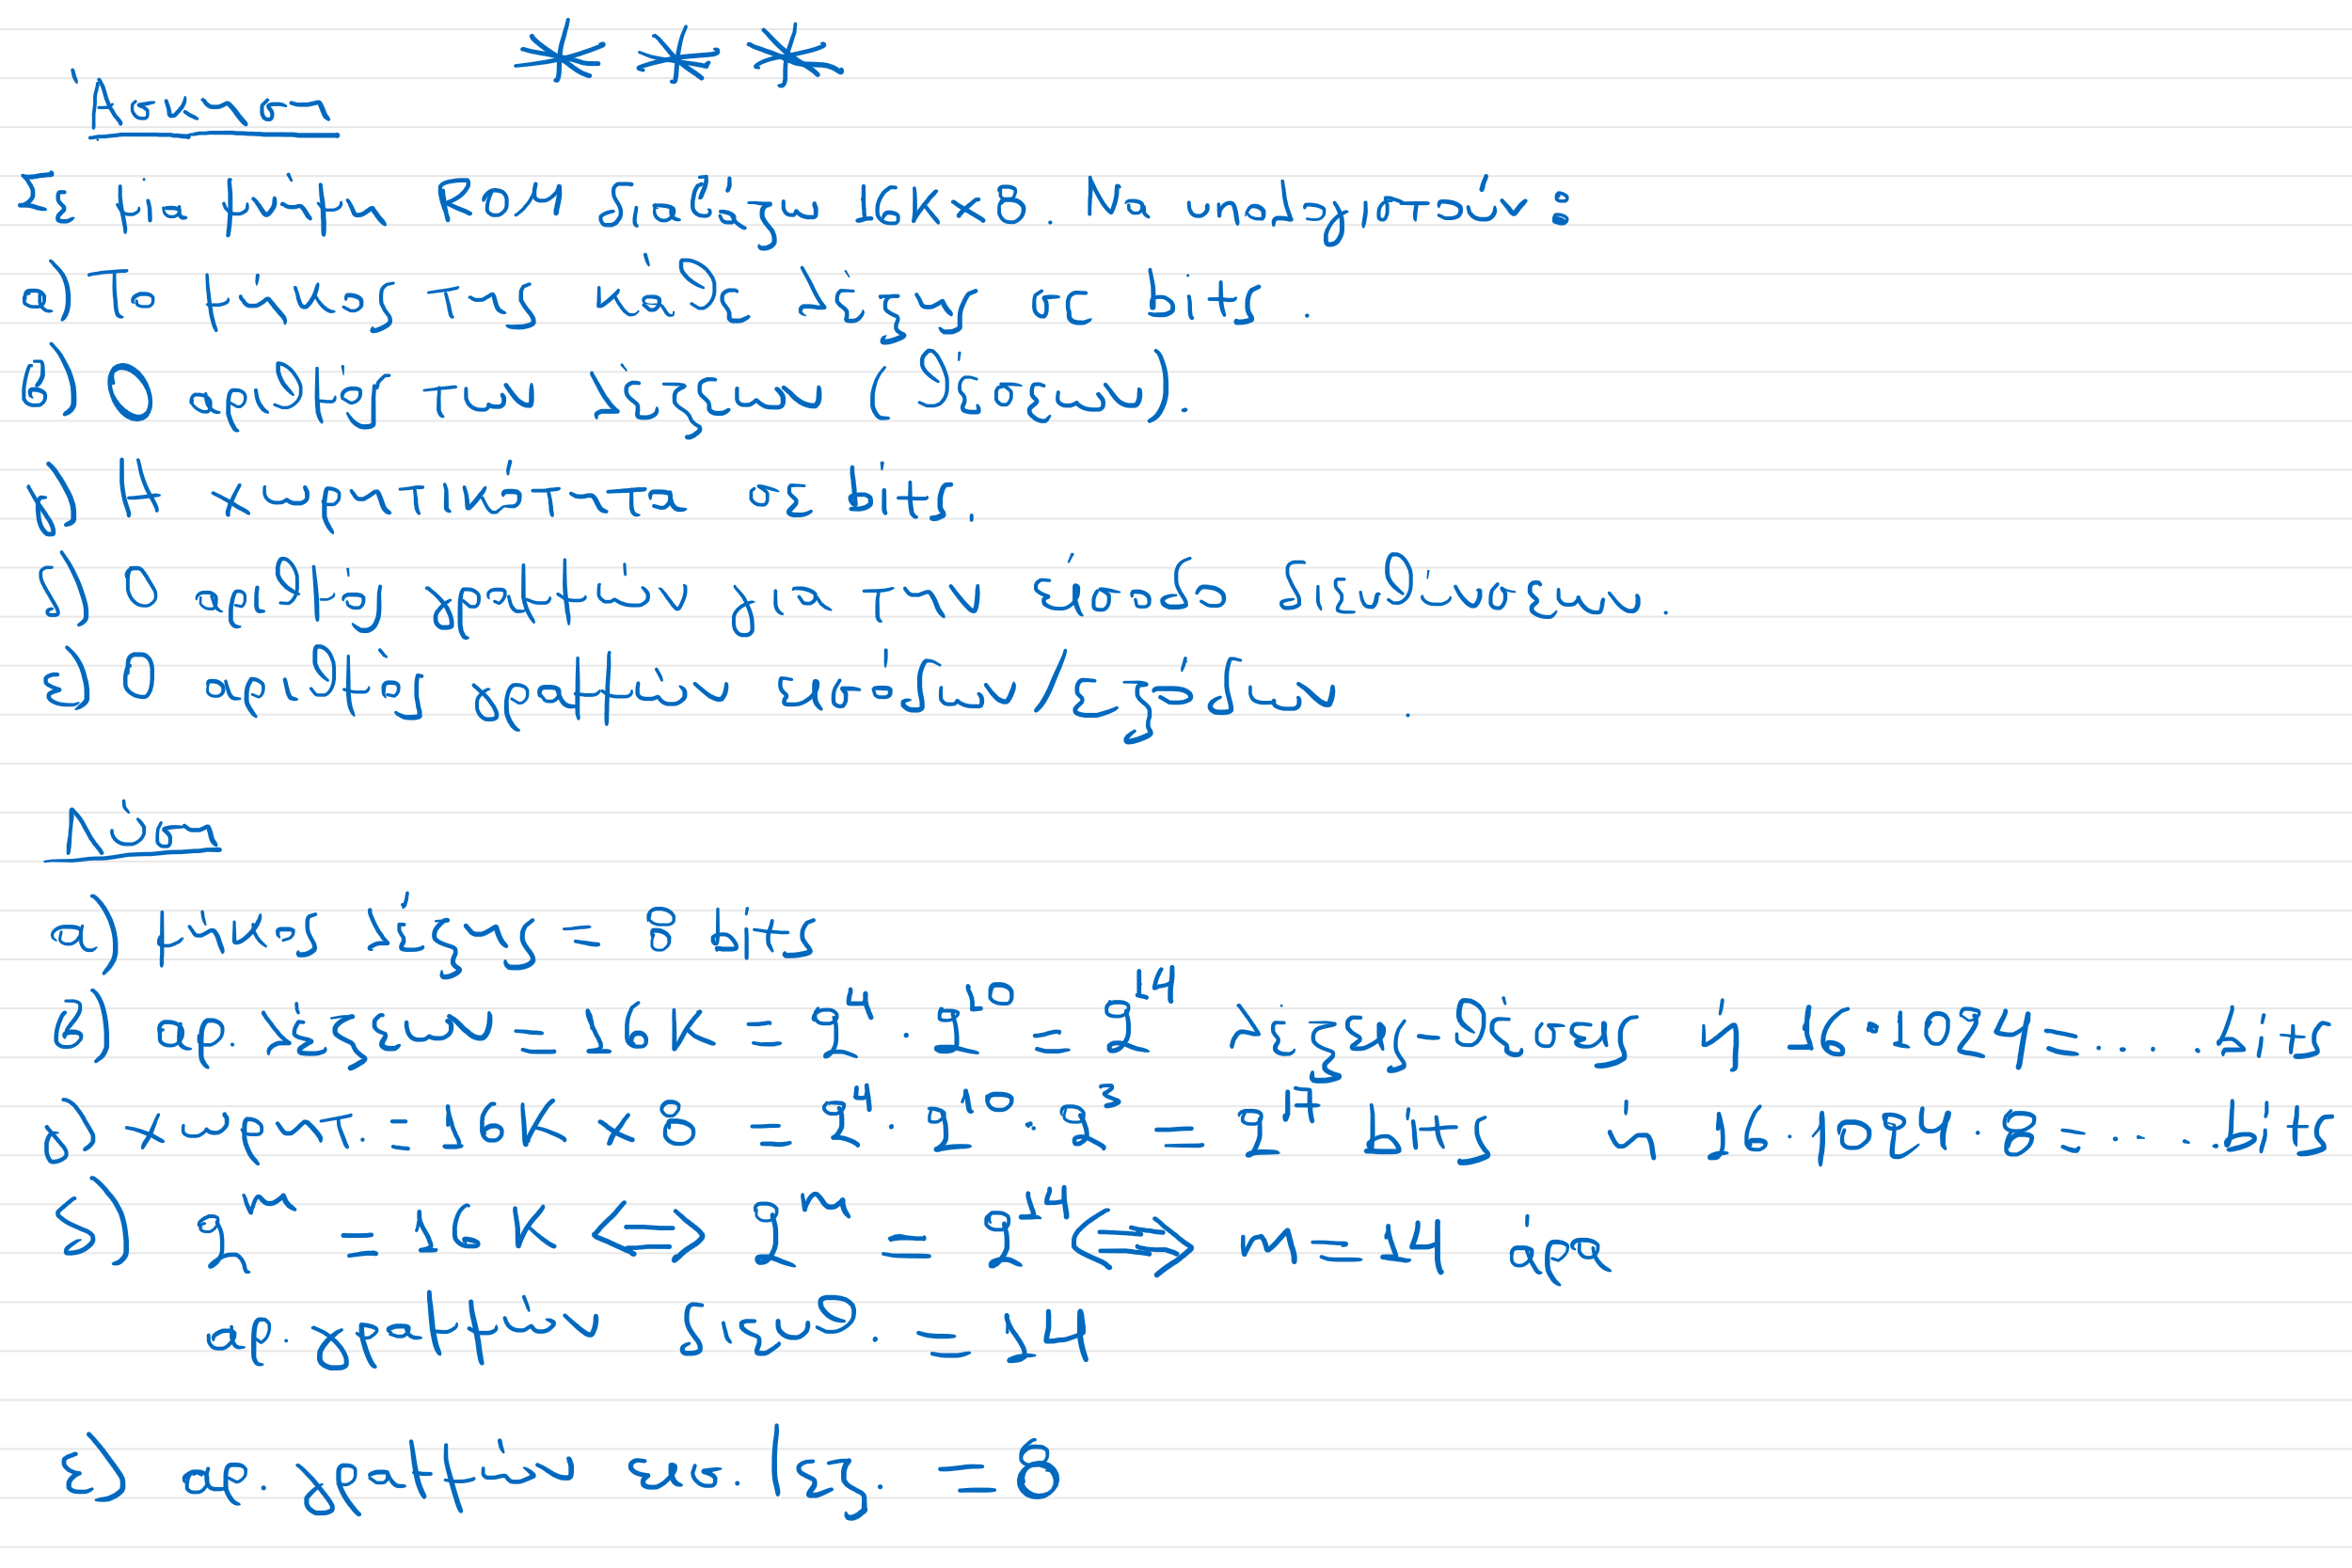 * * *
Άσκηση
Σε μια μνήμη RAM διαβάζω 16K×8. Να υπολογιστούν:
α) Το μήκος της κάθε λέξης σε bits.
β) Ο αριθμός των λέξεων (θέσεων).
γ) Η χωρητικότητα σε bits.
δ) Ο αριθμός γραμμών για την είσοδο διευθύνσεων.
ε) Ο αριθμός γραμμών εισόδων/εξόδων.
Λύση
α) μήκος λέξης = 8 bits
β) αρ. λέξεων = 16 K = 2⁴ · 2¹⁰ = 2¹⁴ λέξεις-θέσεις ή 16·1024=.... bits
γ) χωρητ. = 16K × 8 = 2⁴ · 2¹⁰ · 2³ = 2¹⁷ bits ή 16·1024·8=....bits
δ) 2ᵐ = 16 K <=> 2ᵐ = 2¹⁴ <=> m=14 άρα
αρ. γραμμών διευθ. = 14
ε) αρ. γραμμών εισ./εξ. = 8